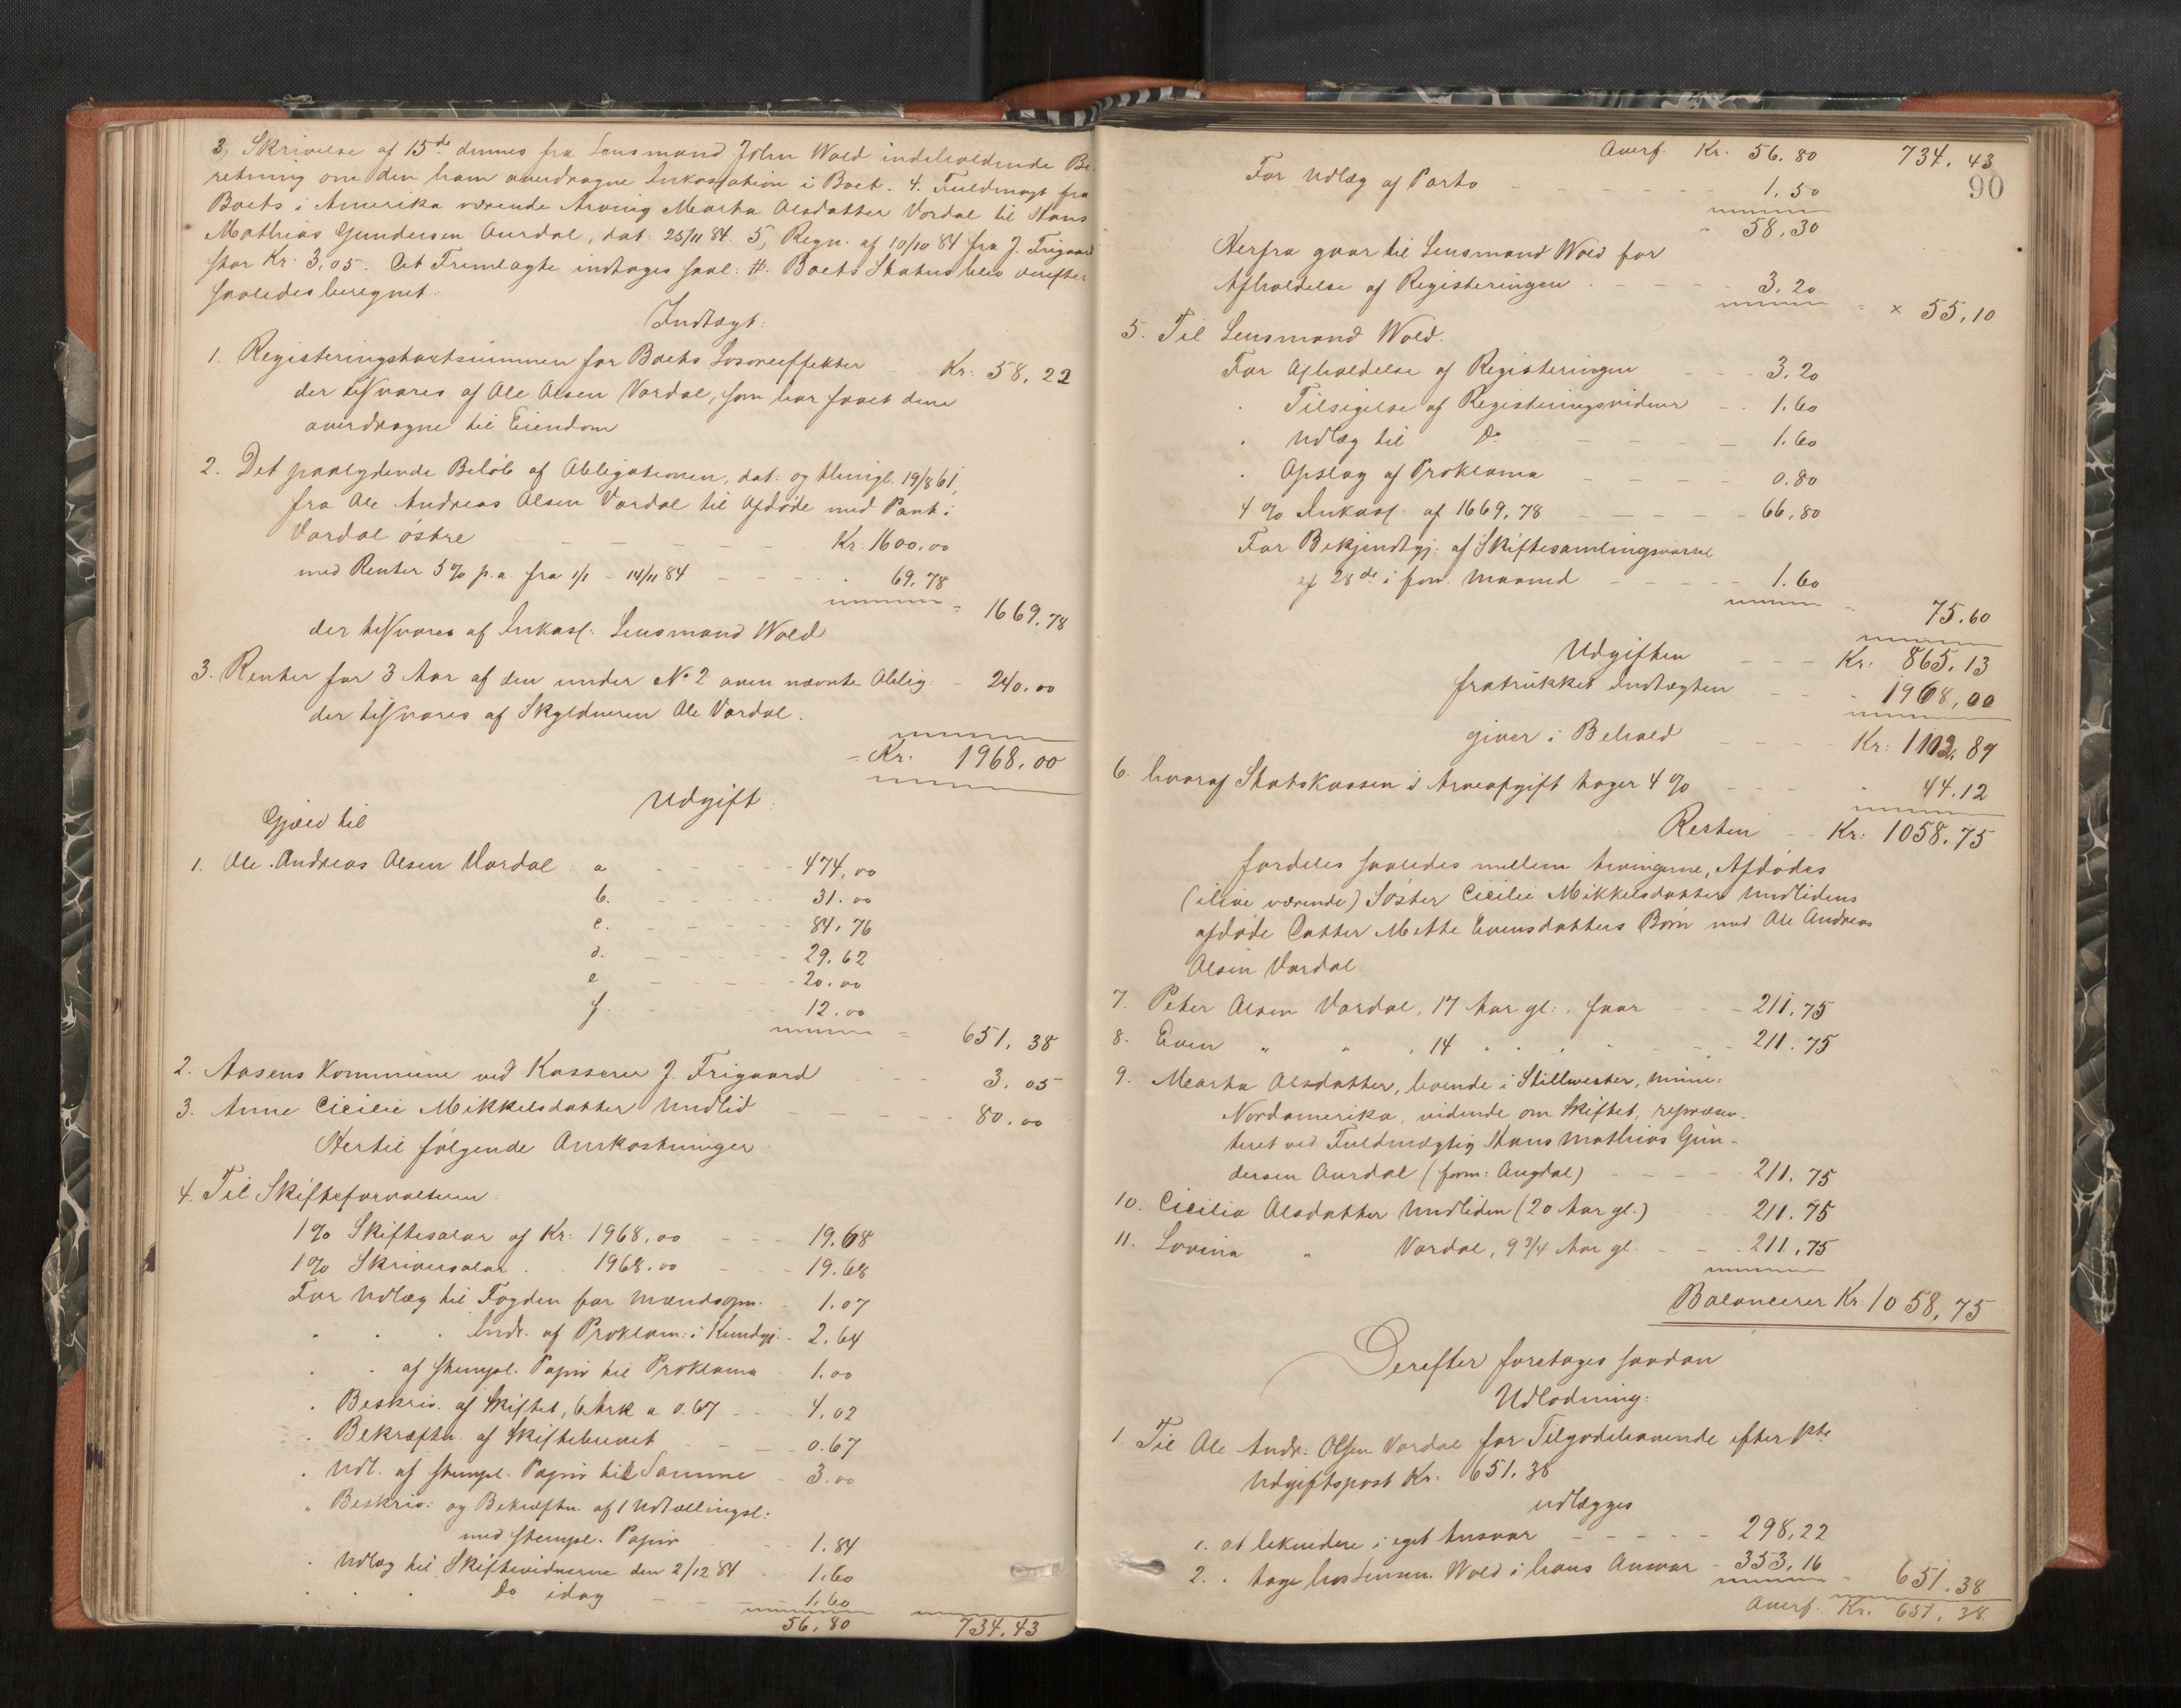 3, Skrivelse af 15de dennes fra Lensmand John Wold indeholdende Be-
retning om den ham overdragne Inkassation i Boet. 4. Fuldmagt fra
Boets i Amerika værende Arving Marta Olsdatter Vordal til Hans
Mathias Gundersen Aurdal, dat. 25/11 84. 5, Regn. af 10/10 84 fra J. Frigaard
stor Kr: 3,05. Det Fremlagte indtages saal: #. Boets Status blev derefter
saaledes beregnet:
Indtægt:
1. Registeringstaxtsummen for Boets Løsøreeffekter Kr: 58,22
der tilsvares af Ole Olsen Vordal, som har faaet dem
overdragne til Eiendom
2. Det paalydende Beløb af Obligationen, dat: og thingl. 19/8 61,
fra Ole Andreas Olsen Vordal til Afdøde med Pant i
Vordal østre Kr: 1600.00
med Renter 5% p.a. fra 1/1 - 14/11 84 69,78 = 1669,78
der tilsvares af Inkass: Lensmand Wold
3. Renter for 3 Aar af den under No 2 oven nævnte Oblig: - 240.00
der tilsvares af Skyldneren Ole Vordal.
= Kr: 1968.00
Udgift:
Gjæld til
1. Ole Andreas Olsen Vordal a 474,00
b. 31.00
c. 84,76
d. 29.62
e 20.00
f. 12.00 = 651,38
2. Aasens Kommune ved Kasserer J. Frigaard 3,05
3. Anne Cicilie Mikkelsdatter Undlid 80.00
Hertil følgende Omkostninger
4. Til Skifteforvalteren:
1% Skiftesalær af Kr: 1968,00 19.68
1% Skriversalær . 1968.00 19.68
For Udlæg til Fogden for Mændsopn. 1.07
" " . Indr. af Proklam: i Kundgj: 2.64
" " af stempl. Papir til Proklama 1.00
" Beskriv. af Skiftet, 6 Ark a 0.67 4,02
" Bekræftn. af Skiftebrevet 0.67
" Udl. af stempl. Papir til Samme 3.00
" Beskriv: og Bekræftn. af 1 Udtællingsl:
med stempl. Papir 1.84
" Udlæg til Skiftevidnerne den 2/12 84 1.60
" " Do idag 1.60
56,80 734.43
Overf. Kr. 56.80 734.43
90
For Udlæg af Porto 1.50
58,30
Herfra gaar til Lensmand Wold for
Afholdelse af Registeringen 3.20 = × 55,10
5. Til Lensmand Wold.
For Afholdelse af Registeringen 3.20
" Tilsigelse af Registeringsvidner 1.60
" Udlæg til Do 1.60
" Opslag af Proklama 0.80
4% Inkass: af 1669,78 66,80
For Bekjendtgj: af Skiftesamlingsvarsel
af 28de i forr. Maaned 1.60 = 75.60
Udgiften Kr: 865,13
fratrukket Indtægten 1968,00
giver i Behold Kr: 1102,87
6. hvoraf Statskassen i Arveafgift tager 4% 44.12
Resten Kr: 1058,75
fordeles saaledes mellem Arvingerne, Afdødes
(ilive værende) Søster Cicilie Mikkelsdatter Undlidens
afdøde Datter Mette Evensdatters Børn med Ole Andreas
Olsen Vordal
7. Peter Olsen Vordal, 17 Aar gl: faar 211,75
8. Even " " , 14 " " " 211.75
9. Marta Olsdatter, boende i Stillwester, Mine:
Nordamerika, vidende om Skiftet, repræsen-
teret ved Fuldmægtig Hans Mathias Gun-
dersen Aurdal (form: Augdal) 211.75
10. Cicilia Olsdatter Undliden (20 Aar gl.) 211.75
11. Lovina " Vordal, 9 3/4 Aar gl. 211,75
Balancerer Kr: 1058,75
Derefter foretages saadan
Udlodning:
1. Til Ole Andr: Olsen Vordal for Tilgodehavende efter 1ste
Udgiftspost Kr: 651.38
udlægges
1. at likvidere i eget Ansvar 298,22
2. " tage hos Lensm. Wold i hans Ansvar 353,16 = 651.38
Overf. Kr. 651,38